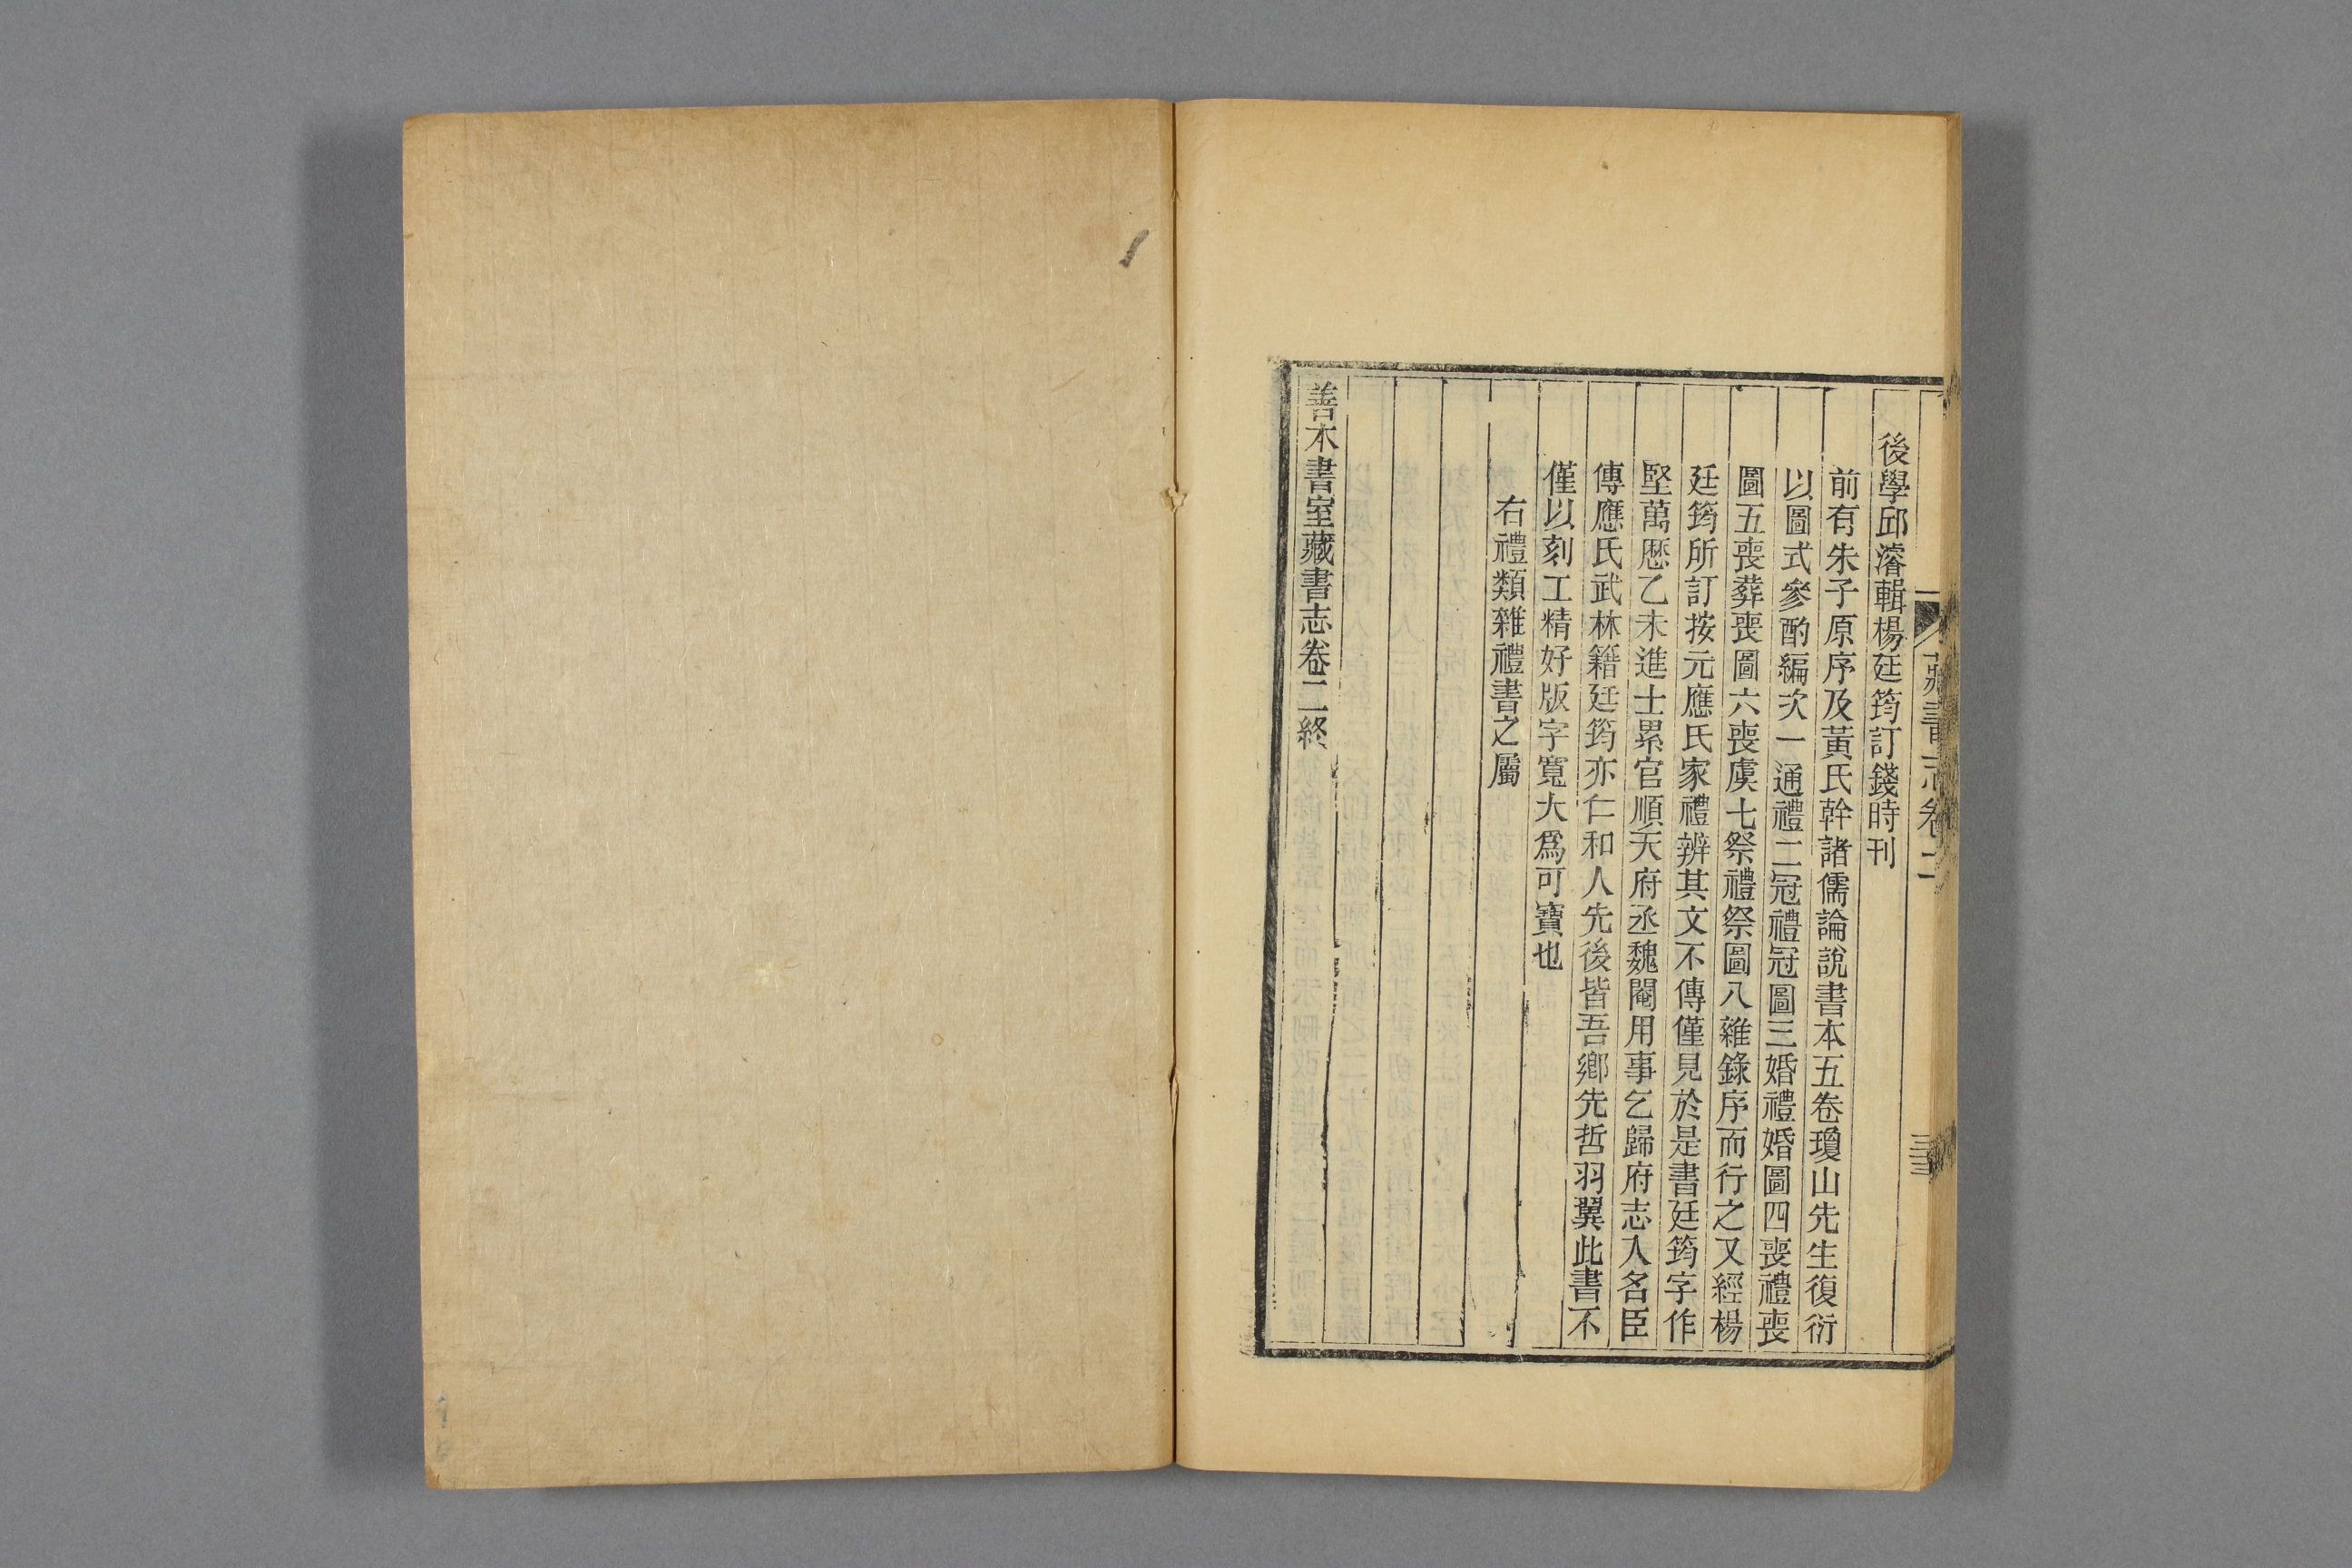 藏書志卷二
後學邱濬輯楊廷筠訂錢時刊
前有朱子原序及黃氏幹諸儒論說書本五卷瓊山先生復衍
以圖式參酌編次一通禮二冠禮冠圖三婚禮婚圖四喪禮喪
圖五喪葬喪圖六喪虞七祭禮祭圖八雜錄序而行之又經楊
廷筠所訂按元應氏家禮辨其文不傳僅見於是書廷筠字作
堅萬厯乙未進士累官順天府丞魏閹用事乞歸府志入名臣
傳應氏武林籍廷筠亦仁和人先後皆吾鄉先哲羽翼此書不
僅以刻工精好版字寬大爲可寶也
右禮類雜禮書之屬
善本書室藏書志卷二終